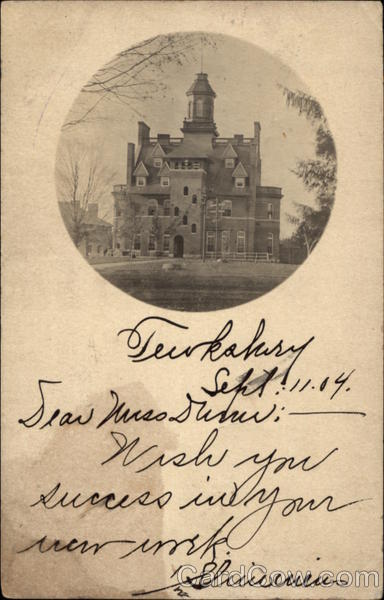 Tewksbury
Sept. 11. 04.
Dear Miss
Wish you
success in your
new work.
CardCow.com